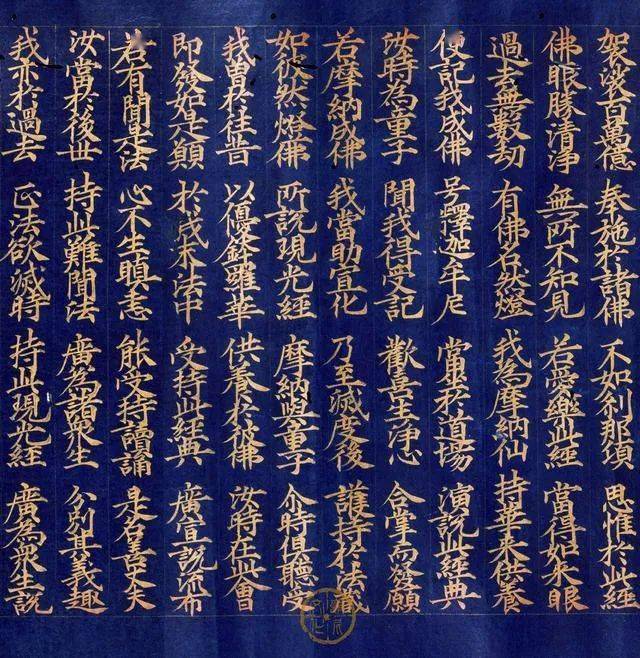 袈裟百万億 奉施於諸佛 不如刹那頃 思惟於此経
佛眼勝清浄 無所不知見 若愛樂此経 當得如来眼
過去無數劫 有佛名然燈 我為摩納仙 持華来供養
便記我成佛 号釋迦牟尼 當坐於道場 演說此経典
汝時為童子 聞我得受記 歡喜生浄心 合掌而發願
若摩納成佛 我當助宣化 乃至滅度後 護持於法藏
如彼然燈佛 所說現光経 摩納與童子 尒時俱聽受
我曽於往昔 以優鉢羅華 供養於彼佛 汝時在此會
即發如是願 於我末法中 受持此経典 廣宣說流布
若有聞是法 心不生瞋恚 能受持讀誦 是名善丈夫
汝當於後世 持此難聞法 廣為諸衆生 分別其義趣
我亦於過去 正法欲滅時 持此現光経 廣為衆生說